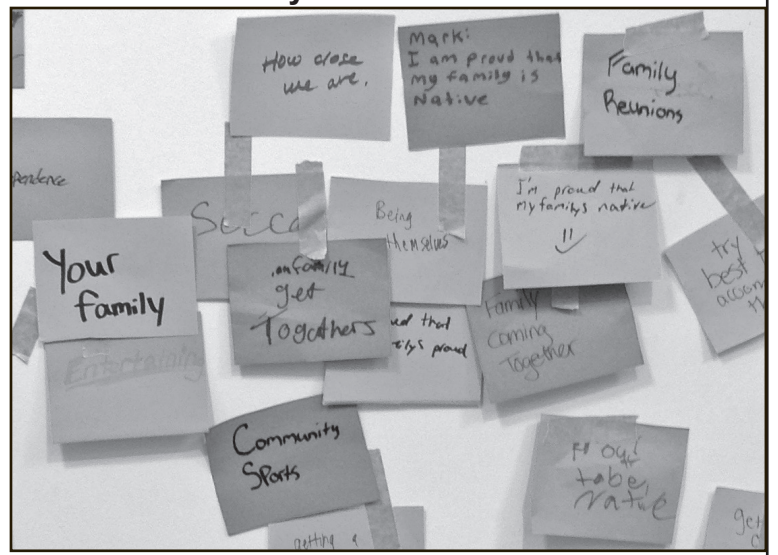 How close
we are.
Mark:
I am proud that
my family is
Native
Family
Reunions
pendence
Being
themselves
I'm proud that
my familys native
Your
family
family
get
Togethers
ud that
ilys proud
Family
Coming
Together
try
best
accom
Entertaining
Community
Sports
to be
Native
getting a
get